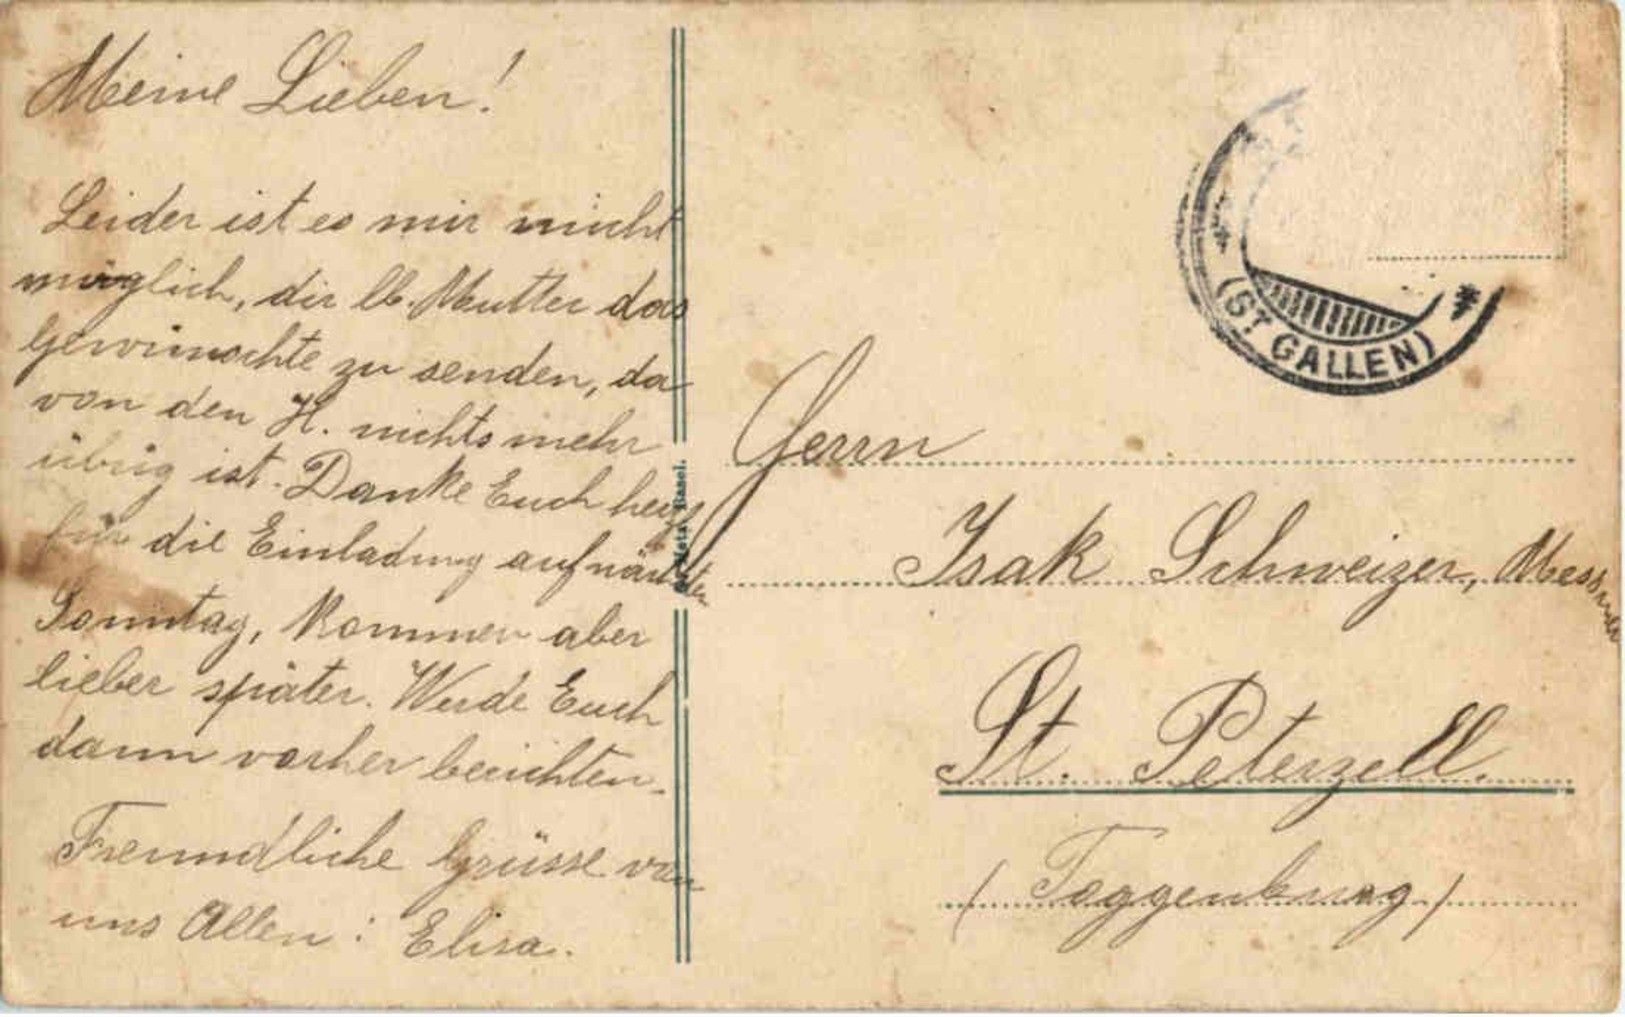 Meine Lieben!
Leider ist es mir nicht
möglich, dir lb. Mutter das
gewünschte zu senden, da
von den H. nichts mehr
übrig ist. Danke Euch herzl
für die Einladung auf nächsten
Sonntag, kommen aber
lieber später. Werde Euch
dann vorher berichten.
Freundliche Grüsse von
uns Allen: Elisa.
Basel.
(ST. GALLEN)
Herrn
Isak Schweizer, Messmer
St. Peterzell.
(Toggenburg)